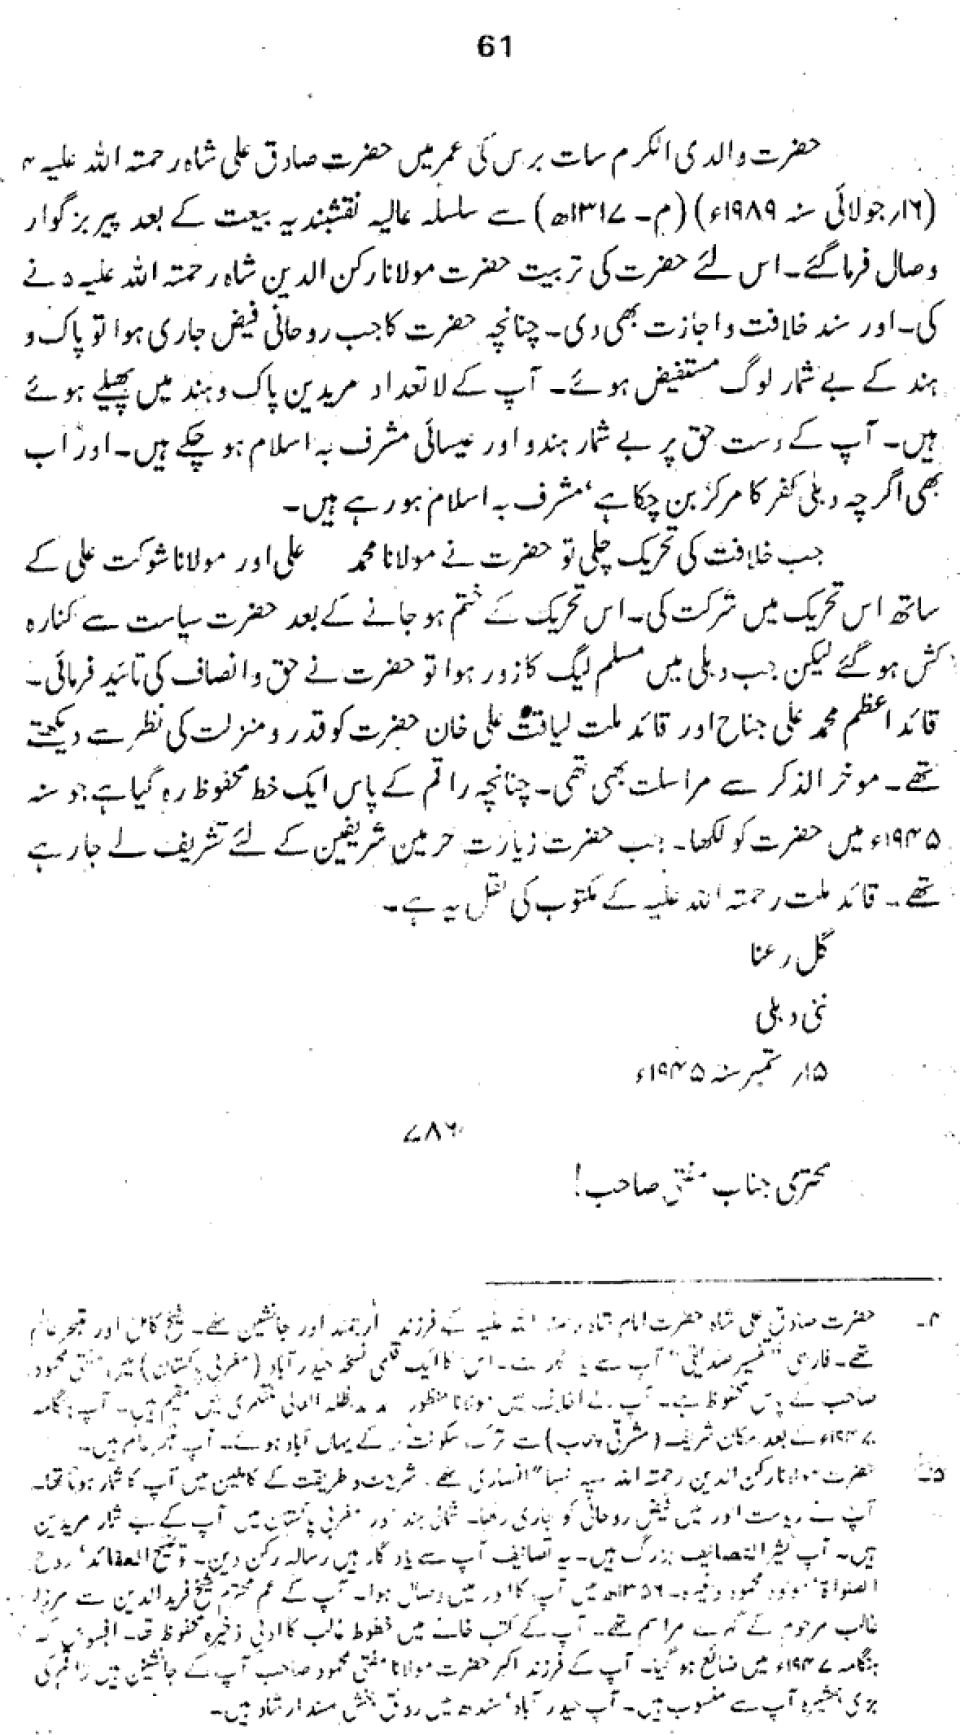 61
حضرت والدی المکرم سات برس کی عمر میں حضرت صادق علی شاہ رحمتہ اللہ علیہ ۴
(۱۶ر جولائی سنہ ۱۹۸۹ء) (م۔ ۱۳۱۷ھ) سے سلسلہ عالیہ نقشبندیہ بیعت کے بعد پیر بزگوار
وصال فرما گئے۔ اس لئے حضرت کی تربیت حضرت مولانا رکن الدین شاہ رحمتہ اللہ علیہ ۵ نے
کی۔ اور سند خلافت و اجازت بھی دی۔ چنانچہ حضرت کا جب روحانی فیض جاری ہوا تو پاک و
ہند کے بے شمار لوگ مستفیض ہوئے۔ آپ کے لاتعداد مریدین پاک و ہند میں پھیلے ہوئے
ہیں۔ آپ کے دست حق پر بے شمار ہندو اور عیسائی مشرف بہ اسلام ہو چکے ہیں۔ اور اب
بھی اگرچہ دہلی کفر کا مرکز بن چکا ہے، مشرف بہ اسلام ہو رہے ہیں۔
جب خلافت کی تحریک چلی تو حضرت نے مولانا محمد علی اور مولانا شوکت علی کے
ساتھ اس تحریک میں شرکت کی۔ اس تحریک کے ختم ہو جانے کے بعد حضرت سیاست سے کنارہ
کش ہو گئے لیکن جب دہلی میں مسلم لیگ کا زور ہوا تو حضرت نے حق و انصاف کی تائید فرمائی۔
قائد اعظم محمد علی جناح اور قائد ملت لیاقت علی خان حضرت کو قدر و منزلت کی نظر سے دیکھتے
تھے۔ موخر الذکر سے مراسلت بھی تھی۔ چنانچہ راقم کے پاس ایک خط محفوظ رہ گیا ہے جو سنہ
۱۹۴۵ء میں حضرت کو لکھا۔ جب حضرت زیارت حرمین شریفین کے لئے تشریف لے جا رہے
تھے۔ قائد ملت رحمتہ اللہ علیہ کے مکتوب کی نقل یہ ہے۔
گل رعنا
نئی دہلی
۱۵ر ستمبر سنہ ۱۹۴۵ء
۷۸۶
محترمی جناب مفتی صاحب!
۴۔ حضرت صادق علی شاہ حضرت امام شاہ رحمتہ اللہ علیہ کے فرزند ارجمند اور جانشین تھے۔ شیخ کامل اور متبحر عالم
تھے۔ فارسی "تفسیر صدیقی" آپ سے یادگار ہے۔ اس کا ایک قلمی نسخہ حیدر آباد (مغربی پاکستان) میں مفتی محمود
صاحب کے پاس محفوظ ہے۔ آپ کے اخلاف میں مولانا منظور مدظلہ العالی منٹگمری میں مقیم ہیں۔ آپ ہنگامہ
۱۹۴۷ء کے بعد مکان شریف (مشرقی پنجاب) سے ترک سکونت کر کے یہاں آباد ہوئے۔ آپ متبحر عالم ہیں۔
۵۔ حضرت مولانا رکن الدین رحمتہ اللہ علیہ نسباً انصاری تھے۔ شریعت و طریقت کے کاملین میں آپ کا شمار ہوتا تھا۔
آپ نے ریاست الور میں فیض روحانی کو جاری رکھا۔ شمالی ہند اور مغربی پاکستان میں آپ کے بے شمار مریدین
ہیں۔ آپ کثیر التصانیف بزرگ ہیں۔ یہ تصانیف آپ سے یادگار ہیں رسالہ رکن دین۔ توضیح العقائد، روح
الصلوٰۃ، مولود محمود وغیرہ۔ ۱۳۵۶ھ میں آپ کا الور میں وصال ہوا۔ آپ کے عم محترم شیخ فرید الدین سے مرزا
غالب مرحوم کے گہرے مراسم تھے۔ آپ کے کتب خانے میں خطوط غالب کا ادبی ذخیرہ محفوظ تھا۔ افسوس کہ
ہنگامہ ۱۹۴۷ء میں ضائع ہو گیا۔ آپ کے فرزند اکبر حضرت مولانا مفتی محمود صاحب آپ کے جانشین ہیں راقم کی
بڑی ہمشیرہ آپ سے منسوب ہیں۔ آپ حیدر آباد، سندھ میں رونق بخش مسند ارشاد ہیں۔